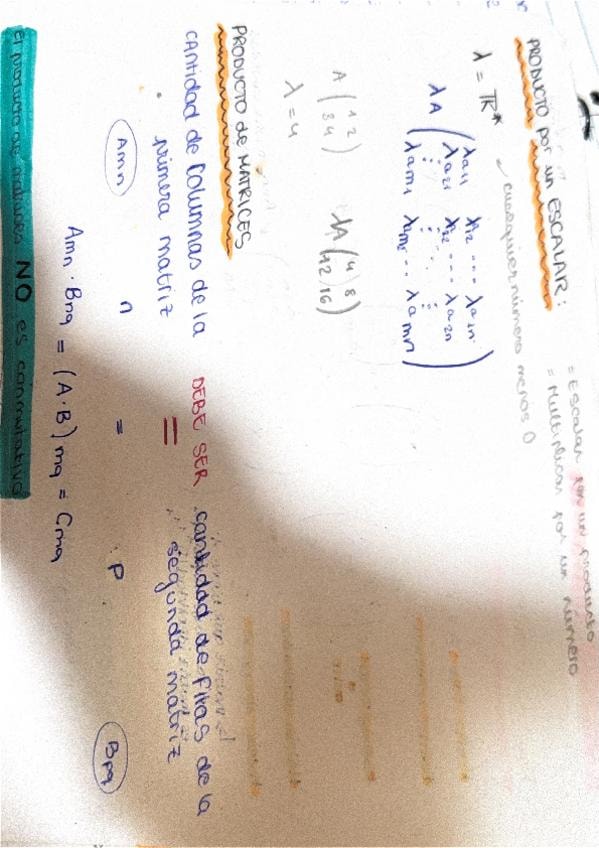 PRODUCTO por un ESCALAR:
= Escalar por un producto
= Multiplicar por un número
λ = ℝ*
cualquier número menos 0
λA ( λa11 λ12 ... λa2n
λa21 λ22 ... λa2n
⋮ ⋮ ⋮
λam1 λam2 ... λamn )
A ( 1 2
3 4 )
λA ( 4 8
12 16 )
λ = 4
PRODUCTO de MATRICES
cantidad de columnas de la primera matriz
DEBE SER
=
cantidad de filas de la segunda matriz
Amn n = p Bpq
Amn · Bnq = (A·B) mq = Cmq
El producto de matrices NO es conmutativo